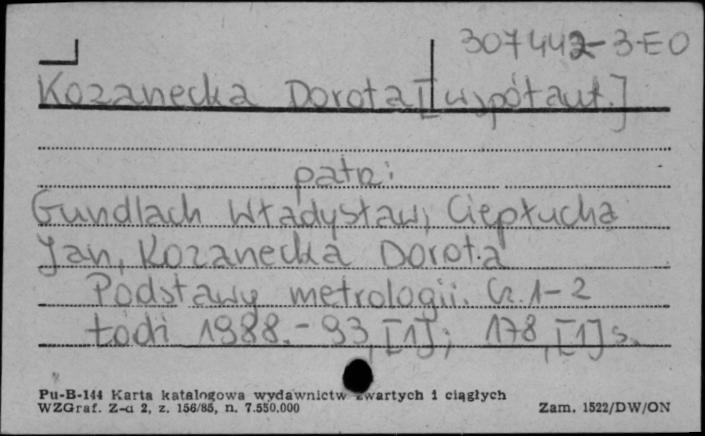 307442-3-EO
Kozanecka Dorota [współaut.]
patrz:
Gundlach Władysław, Ciepłucha
Jan, Kozanecka Dorota
Podstawy metrologii. Cz. 1-2
Łódź 1988.-93, [1]; 178, [1] s.
Pu-B-144 Karta katalogowa wydawnictw zwartych i ciągłych
WZGraf. Z-d 2, z. 156/85, n. 7.550.000
Zam. 1522/DW/ON